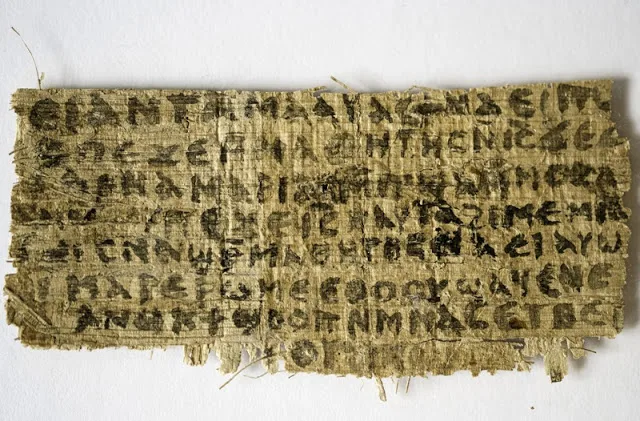 ⲁⲉⲓ ⲁⲛ ⲧⲁⲙⲁⲁⲩ ⲁⲥϯ ⲛⲁⲉⲓ ⲡⲱ
ⲡⲉϫⲉ ⲙⲙⲁⲑⲏⲧⲏⲥ ⲛⲓ̅ⲥ̅ ϫⲉ ⲥ
ⲁⲣⲛⲁ ⲙⲁⲣⲓⲁⲙ ⲙⲡϣⲁ ⲙⲙⲟⲥ ⲁ
ⲡⲉϫⲉ ⲓ̅ⲥ̅ ⲛⲁⲩ ⲧⲁϩⲓⲙⲉ ⲙⲛ
ⲥⲛⲁϣⲣⲙⲁⲑⲏⲧⲏⲥ ⲛⲁⲉⲓ ⲁⲩⲱ
ⲙⲁⲣⲉⲣⲱⲙⲉ ⲉⲑⲟⲟⲩ ϣⲁϥⲉ ⲛⲉ
ⲁⲛⲟⲕ ϯϣⲟⲟⲡ ⲛⲙⲙⲁⲥ ⲉⲧⲃⲉ